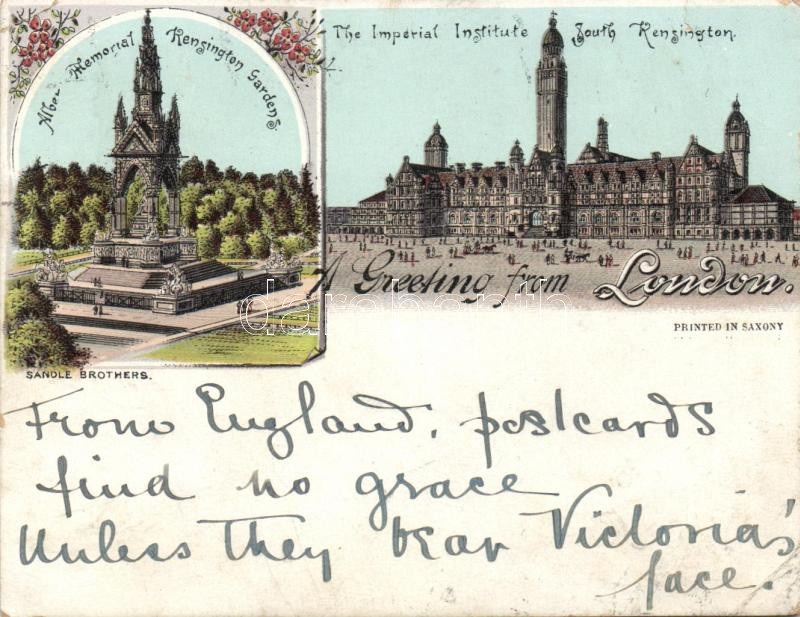 Alber Memorial Kensington Gardens.
The Imperial Institute South Kensington.
A Greeting from London.
PRINTED IN SAXONY
SANDLE BROTHERS.
darabanth
From England, postcards
find no grace
Unless they bear Victoria's
face.